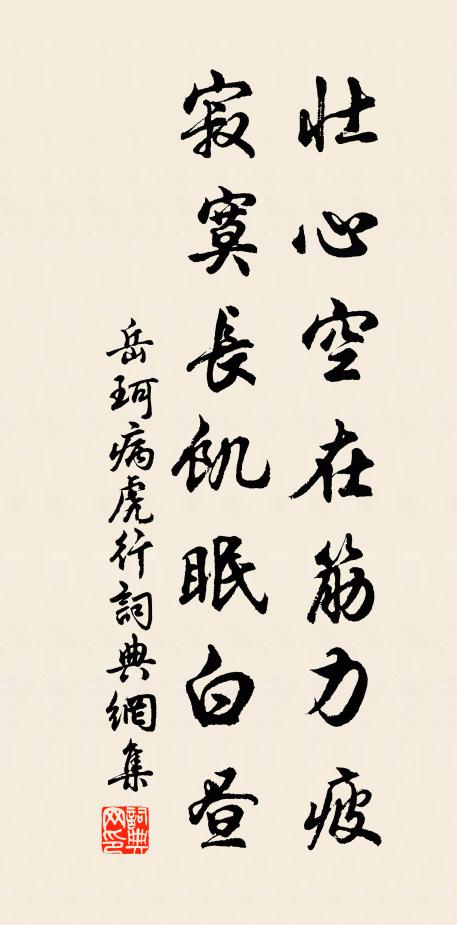 壮心空在筋力疲
寂寞長飢眠白昼
岳珂病虎行詞典網集
詞典网印